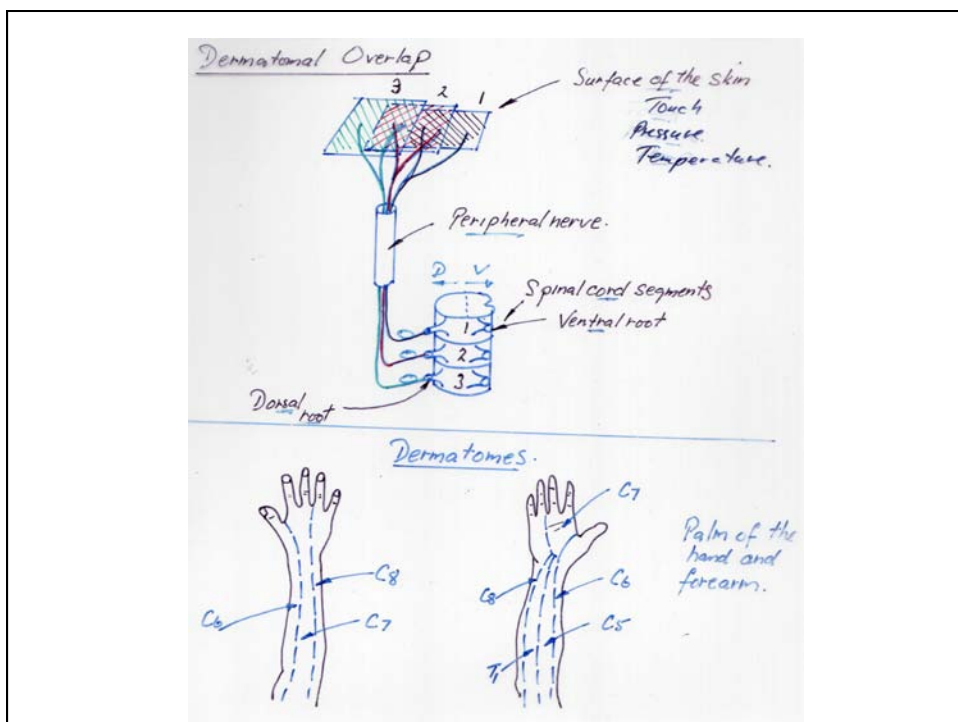 Dermatomal Overlap
3
2
1
Surface of the skin
Touch
Pressure
Temperature.
Peripheral nerve.
D
V
Spinal cord segments
Ventral root
1
2
3
Dorsal
root
Dermatomes.
C7
C8
C6
C7
C8
C6
C5
T1
Palm of the
hand and
forearm.